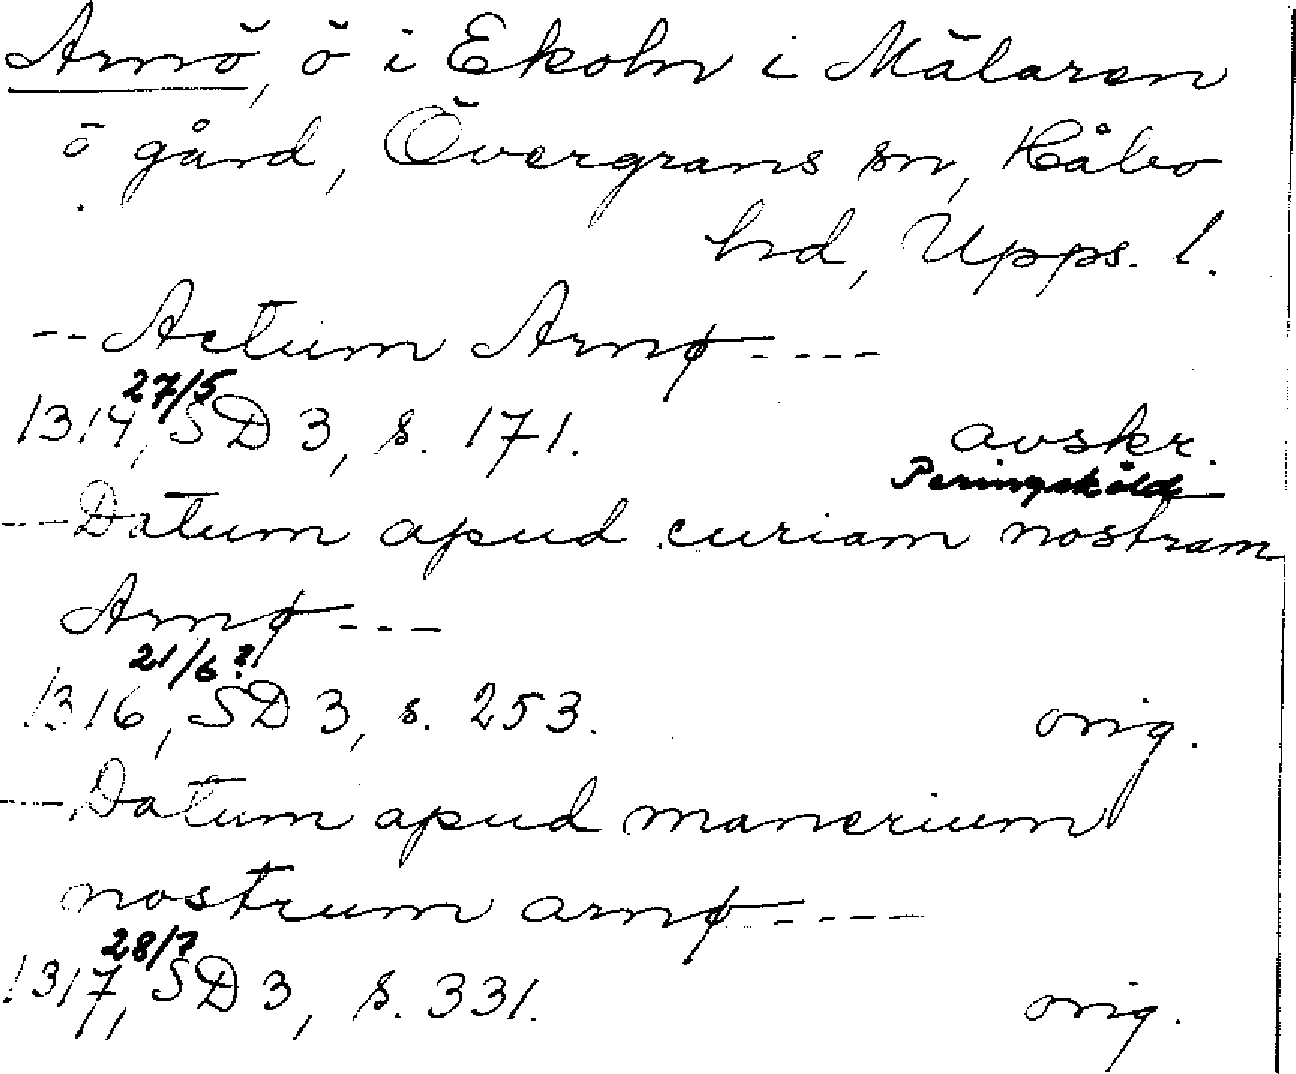 Arnö, ö i Ekoln i Mälaren
o gård, Övergrans sn, Håbo
hd, Upps. l.
-- Actum Arnø ----
27/5
1314, SD 3, s. 171. avskr.
Peringsköld
--- Datum apud curiam nostram
Arnø ---
21/6?
1316, SD 3, s. 253. orig.
--- Datum apud manerium
nostrum arnø ----
28/7
1317, SD 3, s. 331. orig.